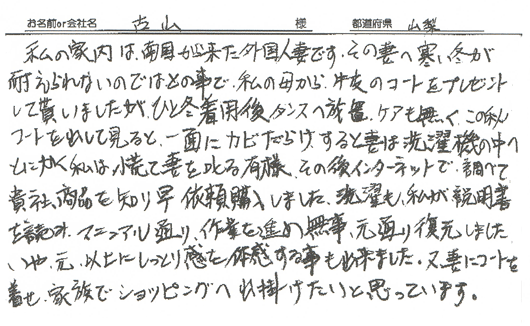 お名前or会社名 古山 様 都道府県 山梨
私の家内は、南国から来た外国人妻です。その妻へ寒い冬が
耐えられないのではとの事で、私の母から、牛皮のコートをプレゼント
して貰いましたが、ひと冬着用後タンスへ放置、ケアも無く、この秋
コートを出して見ると、一面にカビだらけ、すると妻は洗濯機の中へ
とにかく私は慌て妻を叱る有様、その後インターネットで、調べて
貴社、商品を知り早 依頼購入しました、洗濯も、私が説明書
を読み、マニアル通り、作業を進め無事、元通り復元しました
いや、元、以上にしっとり感を体感する事も出来ました。又妻にコートを
着せ、家族でショッピングへ出掛けたいと思っています。